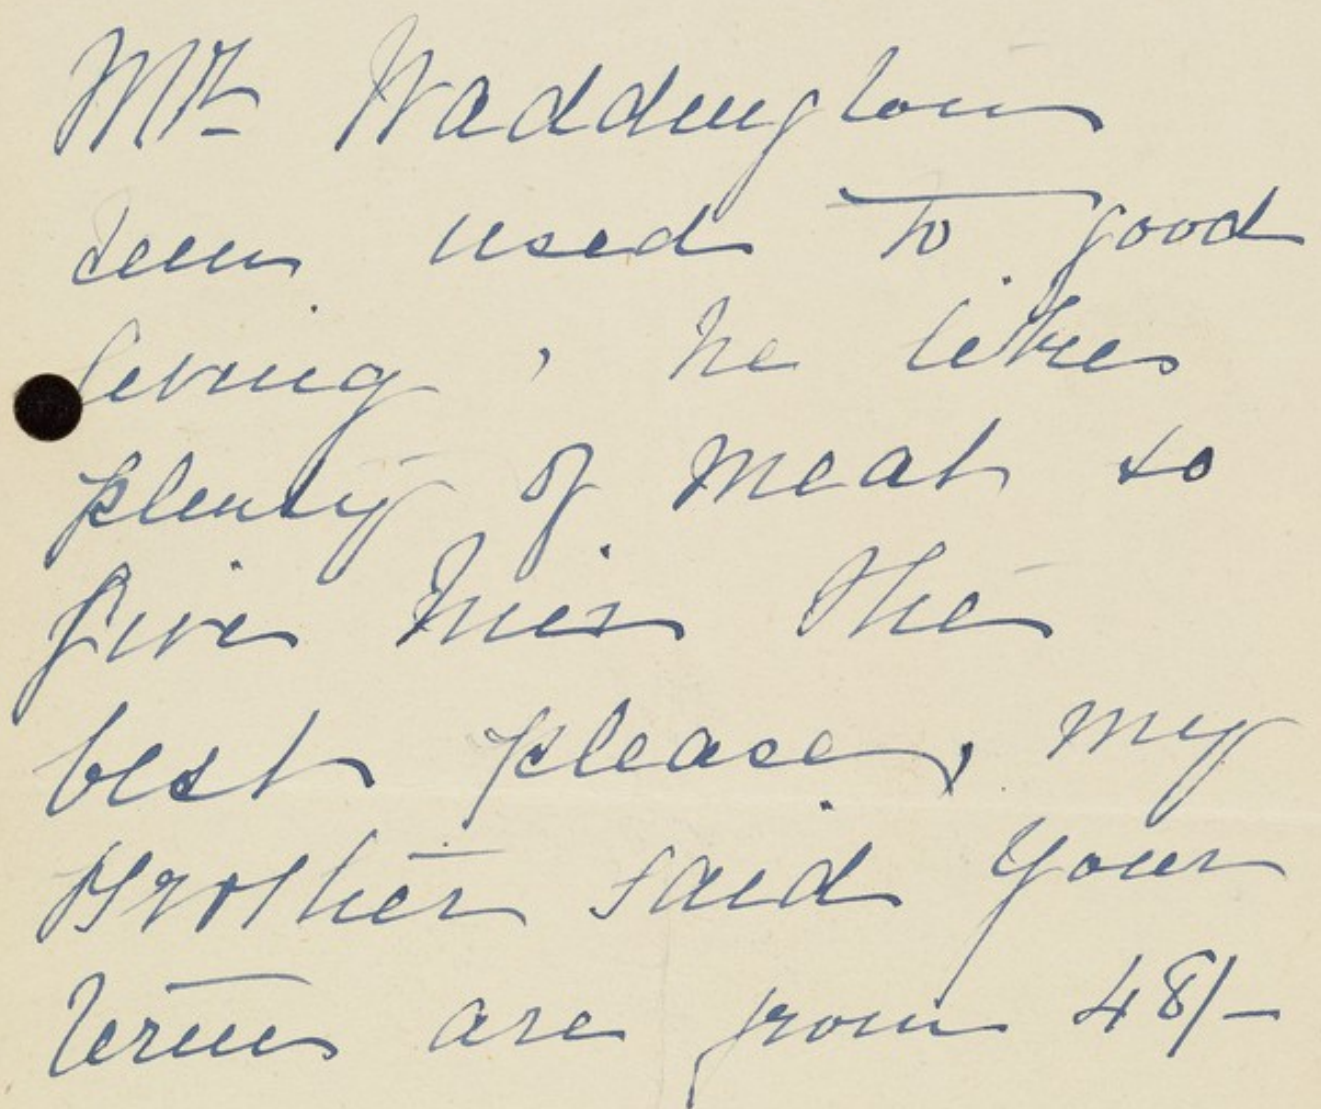 Mr Waddington
been used to good
living, he likes
plenty of meat so
give him the
best please, my
Brother said your
terms are from 48/-